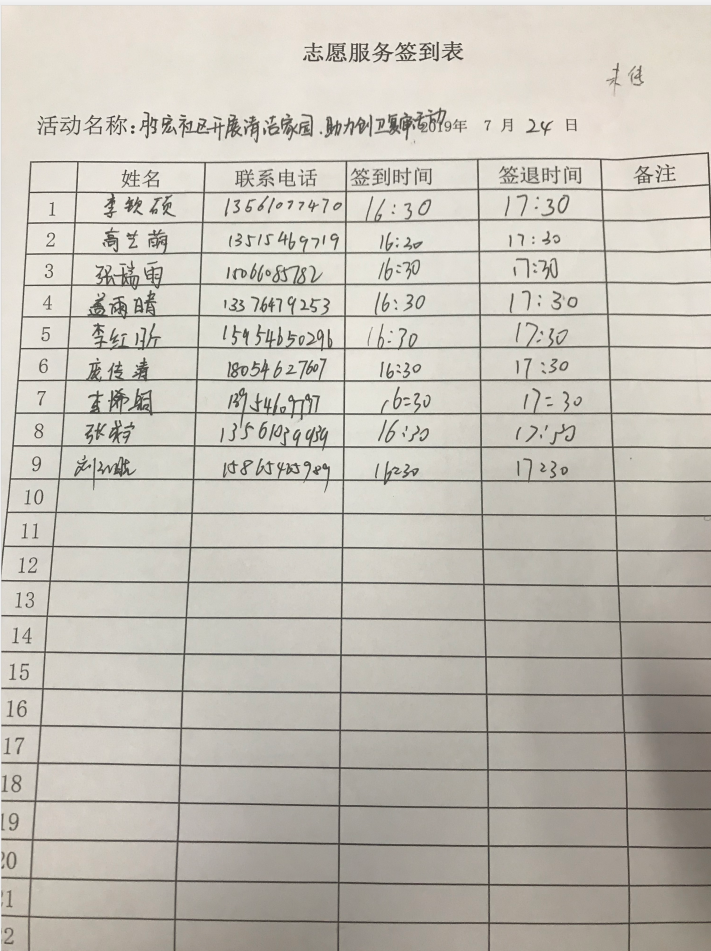 志愿服务签到表
未传
活动名称：社区开展清洁家园、助力创卫复审活动 2019年 7 月 24 日
姓名 联系电话 签到时间 签退时间 备注
1 李钦硕 13561077470 16:30 17:30
2 高艺萌 13515469719 16:30 17:30
3 张瑞雨 15066085782 16:30 17:30
4 盖雨晴 13376479253 16:30 17:30
5 李红 15954650296 16:30 17:30
6 庞传涛 18054627607 16:30 17:30
7 16:30 17:30
8 张 16:30 17:30
9 刘 16:30 17:30
10
11
12
13
14
15
16
17
18
19
20